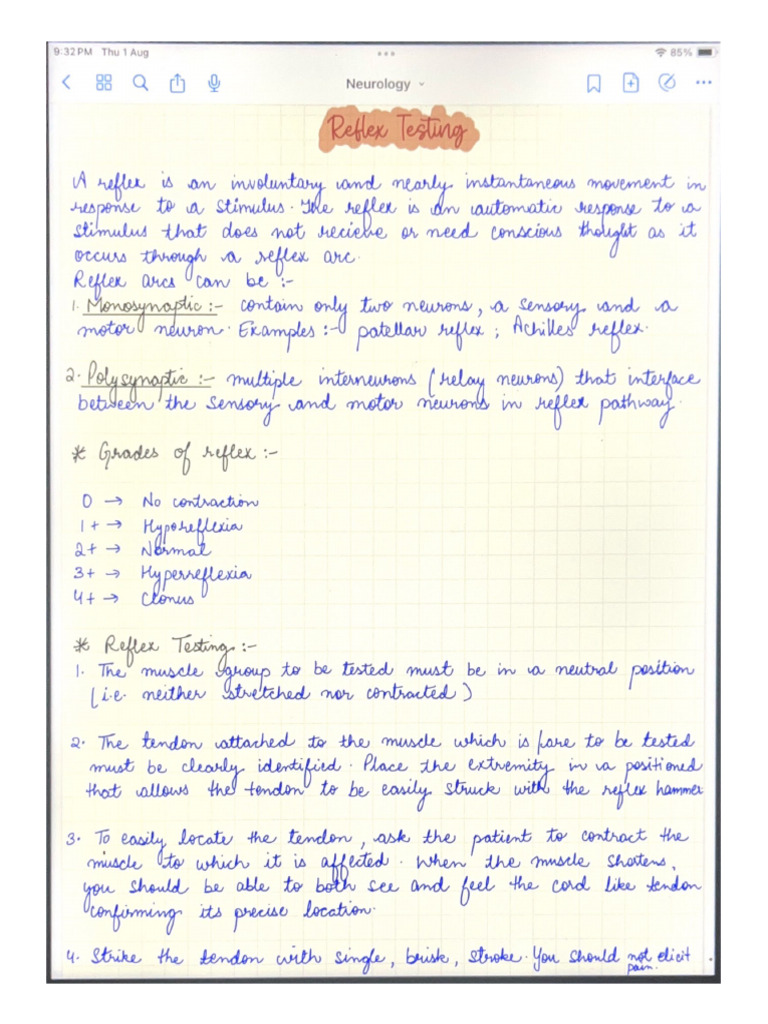 9:32 PM Thu 1 Aug
85%
Neurology
Reflex Testing
A reflex is an involuntary and nearly instantaneous movement in
response to a stimulus. The reflex is an automatic response to a
stimulus that does not recieve or need conscious thought as it
occurs through a reflex arc.
Reflex arcs can be :-
1. Monosynaptic :- contain only two neurons, a sensory and a
motor neuron. Examples :- patellar reflex ; Achilles reflex.
2. Polysynaptic :- multiple interneurons (relay neurons) that interface
between the sensory and motor neurons in reflex pathway.
* Grades of reflex :-
0 → No contraction
1+ → Hyporeflexia
2+ → Normal
3+ → Hyperreflexia
4+ → Clonus
* Reflex Testing :-
1. The muscle group to be tested must be in a neutral position
(i.e. neither stretched nor contracted)
2. The tendon attached to the muscle which is/are to be tested
must be clearly identified. Place the extremity in a positioned
that allows the tendon to be easily struck with the reflex hammer
3. To easily locate the tendon, ask the patient to contract the
muscle to which it is affected. When the muscle shortens,
you should be able to both see and feel the cord like tendon
confirming its precise location.
4. Strike the tendon with single, brisk, stroke. You should not elicit
pain.